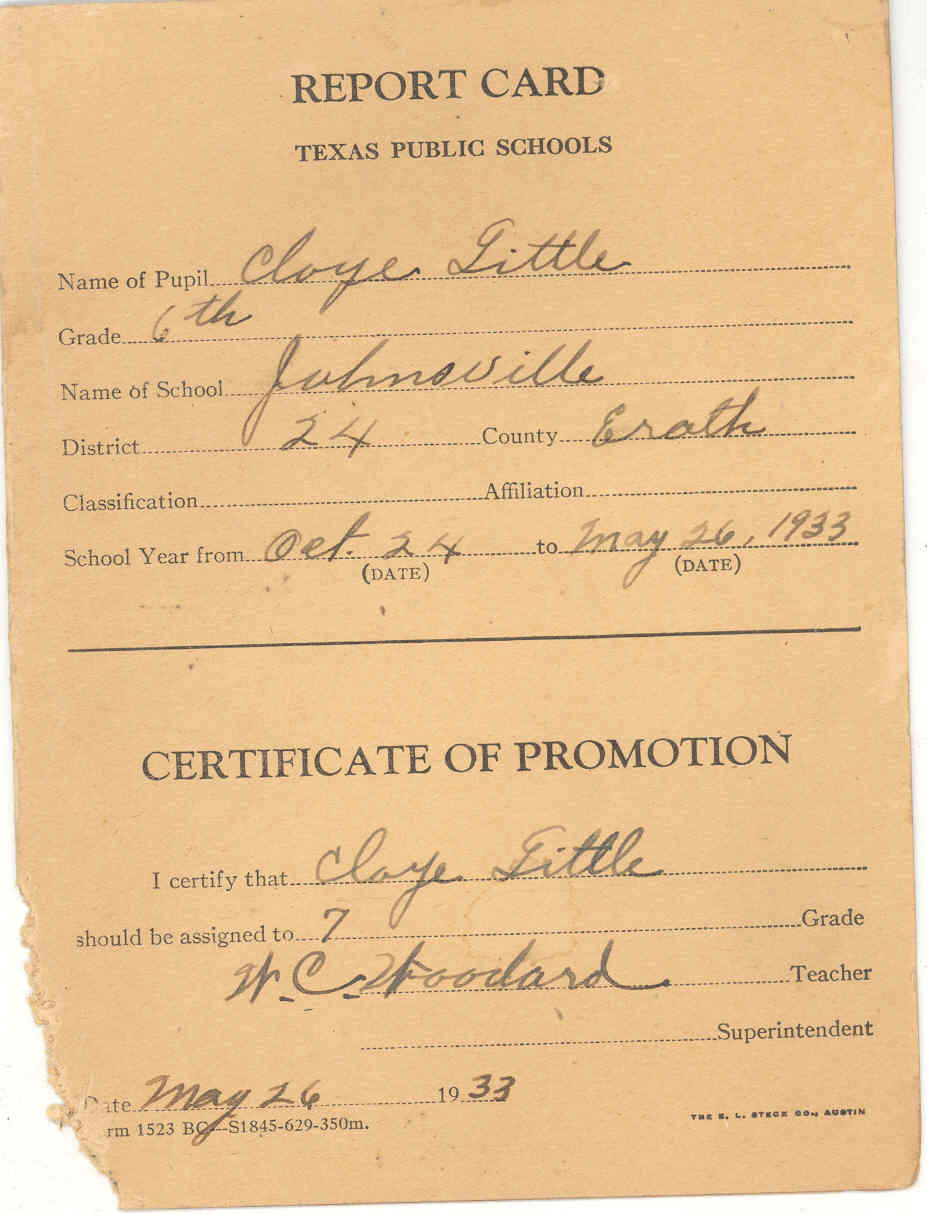 REPORT CARD
TEXAS PUBLIC SCHOOLS
Name of Pupil Cloye Tittle
Grade 6th
Name of School Johnsville
District 24 County Erath
Classification Affiliation
School Year from Oct. 24 to May 26, 1933
(DATE) (DATE)
CERTIFICATE OF PROMOTION
I certify that Cloye Tittle
should be assigned to 7 Grade
W. C. Woodard Teacher
Superintendent
Date May 26 1933
rm 1523 BC—S1845-629-350m.
THE E. L. STECK CO., AUSTIN